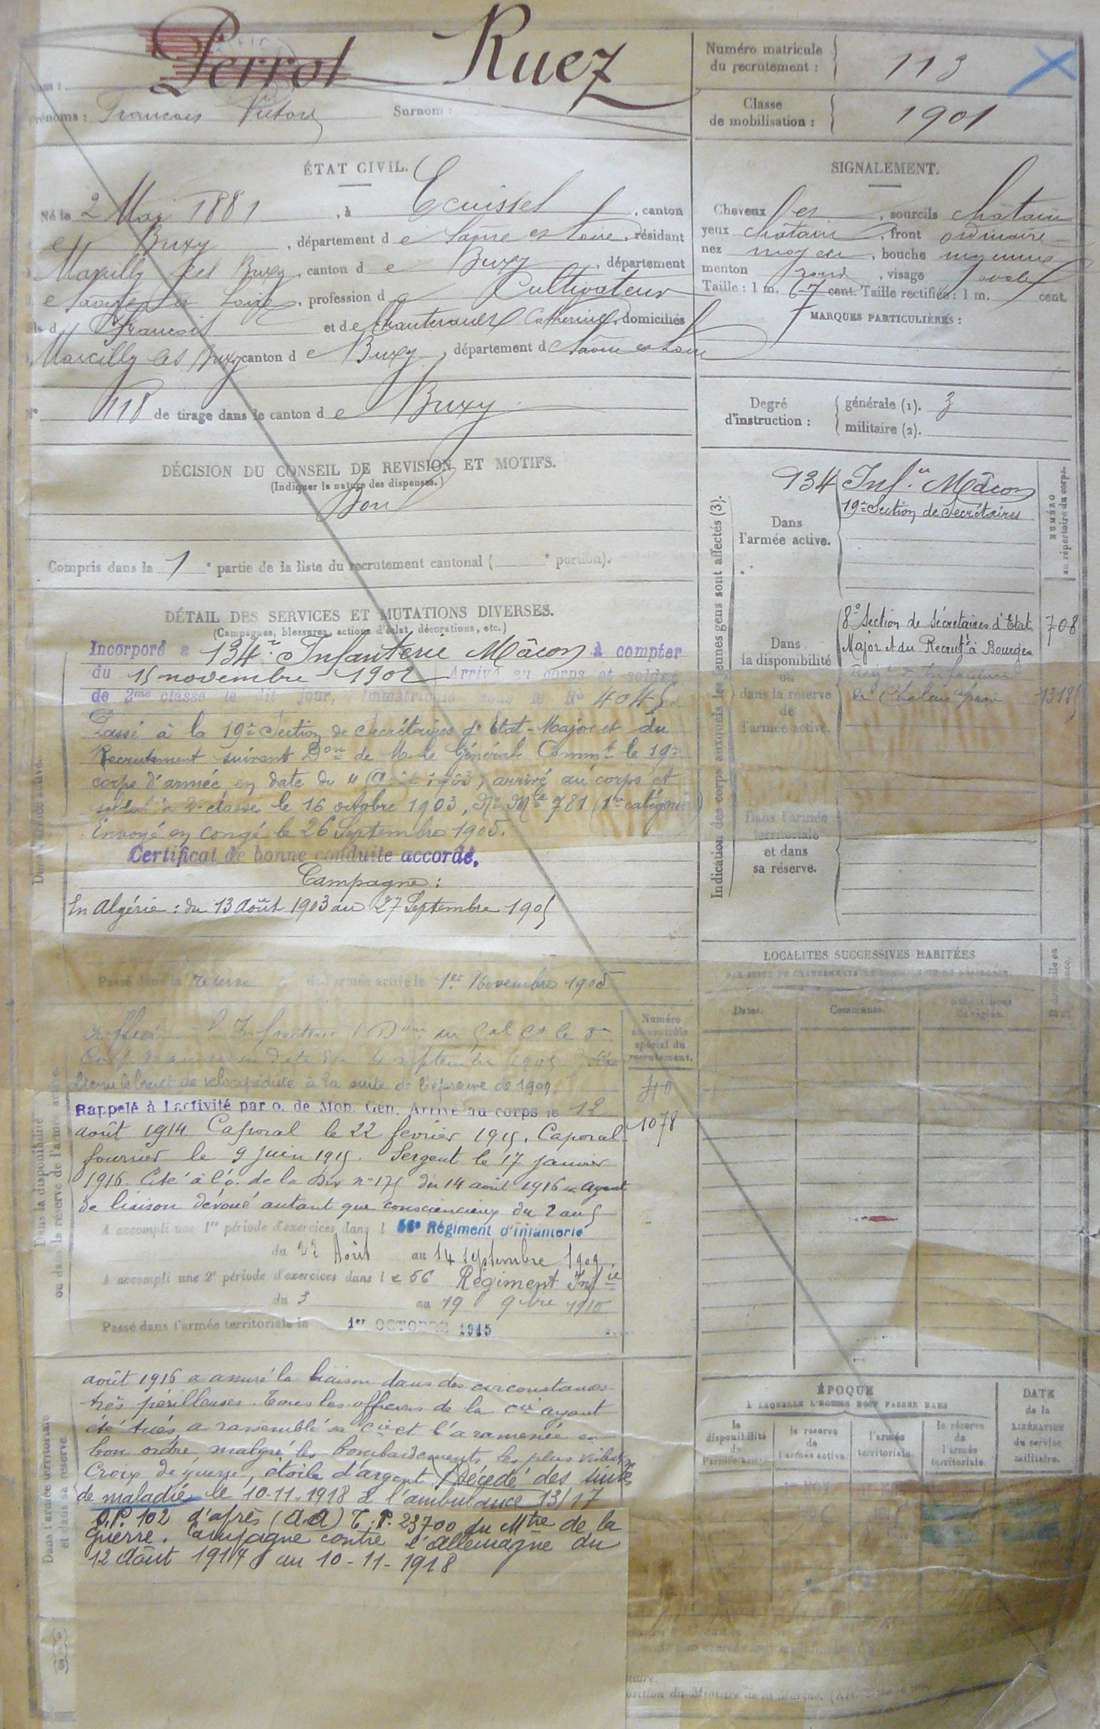 Perrot Ruez
Prénoms : François Victor Surnom :
Numéro matricule du recrutement : 113
Classe de mobilisation : 1901
ÉTAT CIVIL.
Né le 2 Mai 1881, à Ecuisses, canton
Buxy, département de Saône et Loire, résidant
Marcilly les Buxy, canton de Buxy, département
de Saône et Loire, profession de Cultivateur
fils de François et de Catherine, domiciliés
Marcilly les Buxy canton de Buxy, département de Saône et Loire
N° 118 de tirage dans le canton de Buxy
SIGNALEMENT.
Cheveux , sourcils châtain
yeux châtain, front ordinaire
nez moyen, bouche moyenne
menton rond, visage ovale
Taille : 1 m. 67 cent. Taille rectifiée : 1 m. cent.
MARQUES PARTICULIÈRES :
Degré d'instruction : générale (1). 3
militaire (2).
DÉCISION DU CONSEIL DE REVISION ET MOTIFS.
(Indiquer la nature des dispenses.)
Bon
Compris dans la 1e partie de la liste du recrutement cantonal ( e portion).
Indication des corps auxquels les jeunes gens sont affectés (3).
NUMÉRO au répertoire du corps.
Dans l'armée active.
134 Inf.ie Mâcon
19e Section de Secrétaires
Dans la disponibilité ou dans la réserve de l'armée active.
8e Section de Secrétaires d'Etat 708
Major et du Recrut à Bourges
Dans l'armée territoriale et dans sa réserve.
DÉTAIL DES SERVICES ET MUTATIONS DIVERSES.
(Campagnes, blessures, actions d'éclat, décorations, etc.)
Incorporé a 134e Infanterie Mâcon à compter
du 15 novembre 1902 Arrivé au corps et soldat
de 2me classe le dit jour, Immatriculé sous le No 4045
Passé à la 19e Section de Secrétaires d'Etat-Major et du
Recrutement suivant Don de M. le Général Commt le 19e
corps d'armée en date du , arrivé au corps et
soldat de 2e classe le 16 octobre 1903, No Mle 781 (1re catégorie)
Envoyé en congé le 26 Septembre 1905.
Certificat de bonne conduite accordé.
Campagne :
En Algérie : du 13 Août 1903 au 27 Septembre 1905
Passé dans la réserve de l'armée active le 1er Novembre 1905
Numéro au contrôle spécial du recrutement.
1078
Rappelé à l'activité par o. de Mob. Gén. Arrivé au corps le 12
août 1914 Caporal le 22 février 1915. Caporal
fourrier le 9 juin 1915. Sergent le 17 janvier
1916. Cité à l'o. de la Div n° 175 du 14 août 1916 "agent
de liaison dévoué autant que consciencieux du 2 au 5
A accompli une 1re période d'exercices dans l 56e Régiment d'Infanterie
du 23 Août au 14 Septembre
A accompli une 2e période d'exercices dans le 56 Régiment Infie
du 3 au 19 9bre 1910
Passé dans l'armée territoriale le 1er OCTOBRE 1915
août 1916 a assuré la liaison dans des circonstances
très périlleuses. Tous les officiers de la Cie ayant
été tués a rassemblé sa Cie et l'a ramenée en
bon ordre malgré les bombardements les plus violents
Croix de guerre, étoile d'argent. Décédé des suites
de maladie le 10-11-1918 à l'ambulance 13/17
S.P. 102 d'après (a.a) T.P. 23700 du Mtre de la
Guerre. Campagne contre l'Allemagne du
12 août 1914 au 10-11-1918
LOCALITÉS SUCCESSIVES HABITÉES
Dates. Communes.
ÉPOQUE
À LAQUELLE L'HOMME DOIT PASSER DANS
la disponibilité de l'armée active.
la réserve de l'armée active.
l'armée territoriale.
la réserve de l'armée territoriale.
DATE de la LIBÉRATION du service militaire.